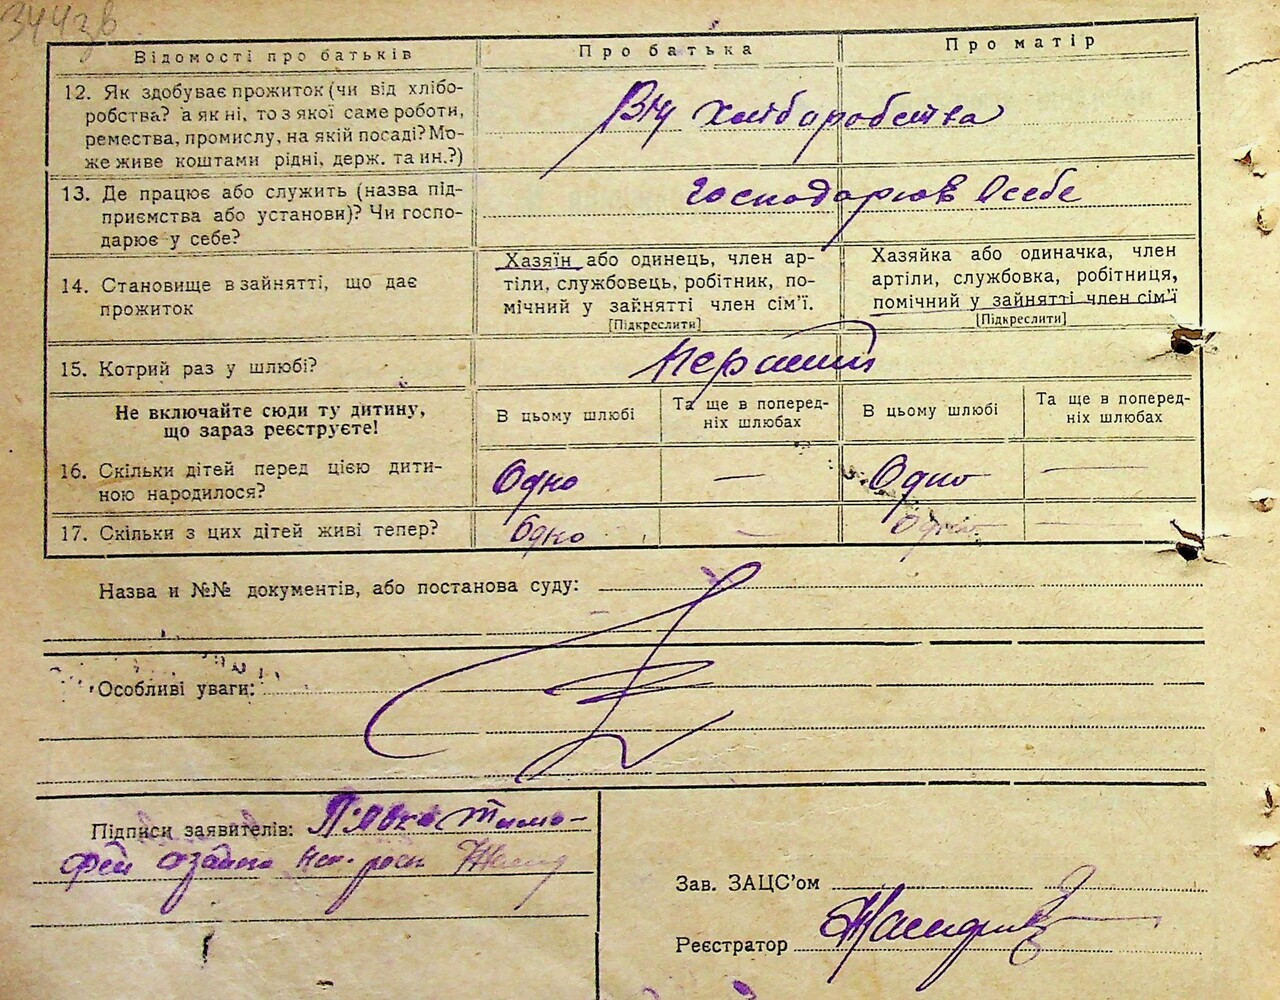 344зв
Відомості про батьків
Про батька
Про матір
12. Як здобуває прожиток (чи від хлібо-
робства? а як ні, то з якої саме роботи,
ремества, промислу, на якій посаді? Мо-
же живе коштами рідні, держ. та ин.?)
Від хлібаробства
13. Де працює або служить (назва під-
приємства або установи)? Чи госпо-
дарює у себе?
Господарюв Осебе
14. Становище в зайнятті, що дає
прожиток
Хазяїн або одинець, член ар-
тілі, службовець, робітник, по-
мічний у зайнятті член сім'ї.
[Підкреслити]
Хазяйка або одиначка, член
артілі, службовка, робітниця,
помічний у зайнятті член сім'ї
[Підкреслити]
15. Котрий раз у шлюбі?
Перший
Не включайте сюди ту дитину,
що зараз реєструєте!
В цьому шлюбі
Та ще в поперед-
ніх шлюбах
В цьому шлюбі
Та ще в поперед-
ніх шлюбах
16. Скільки дітей перед цією дити-
ною народилося?
Одно — Одно —
17. Скільки з цих дітей живі тепер?
Одно — Одно —
Назва и №№ документів, або постанова суду:
Особливі уваги:
Підписи заявителів: Тимо-
фей
Зав. ЗАЦС'ом
Реєстратор